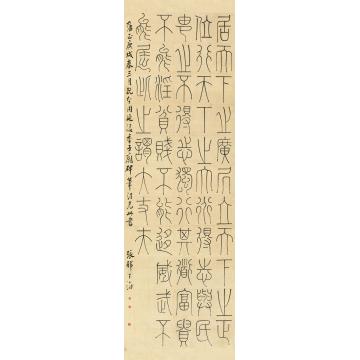 居天下之廣居立天下之正
位行天下之大道得志與民
由之不得志獨行其道富貴
不能淫貧賤不能移威武不
能屈此之謂大丈夫
庚戌春三月